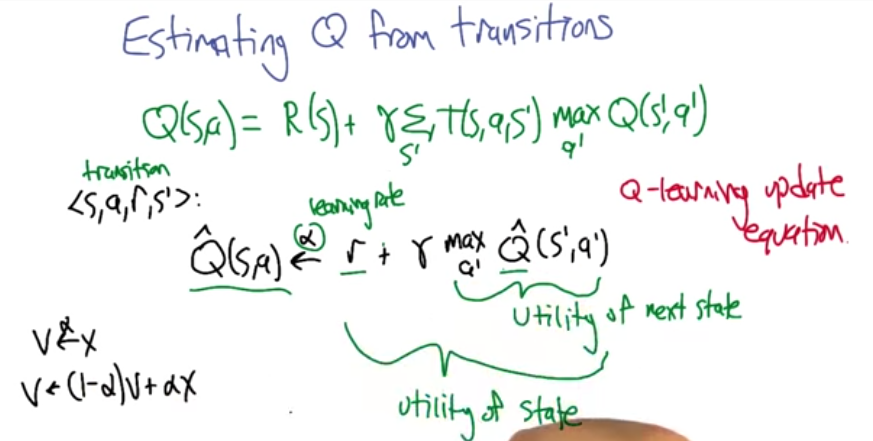 Estimating Q from transitions
Q(s,a) = R(s) + γ Σ_s' T(s,a,s') max_a' Q(s',a')
transition
<s,a,r,s'>:
learning rate
Q-learning update
equation.
Q̂(s,a) ←^α r + γ max_a' Q̂(s',a')
utility of next state
V ←^α X
V ← (1-α)V + αX
utility of state